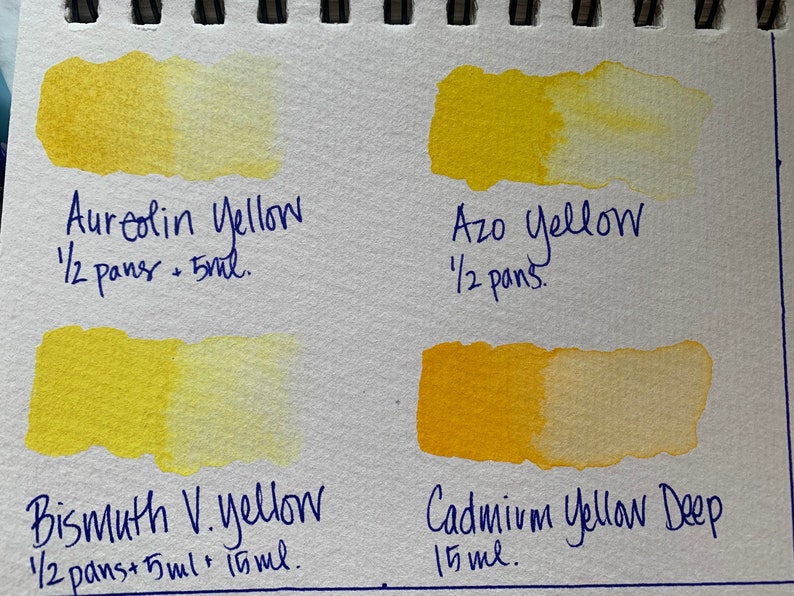 Aureolin Yellow
1/2 pans + 5ml.
Azo Yellow
1/2 pans.
Bismuth V. Yellow
1/2 pans + 5ml + 15ml.
Cadmium Yellow Deep
15ml.